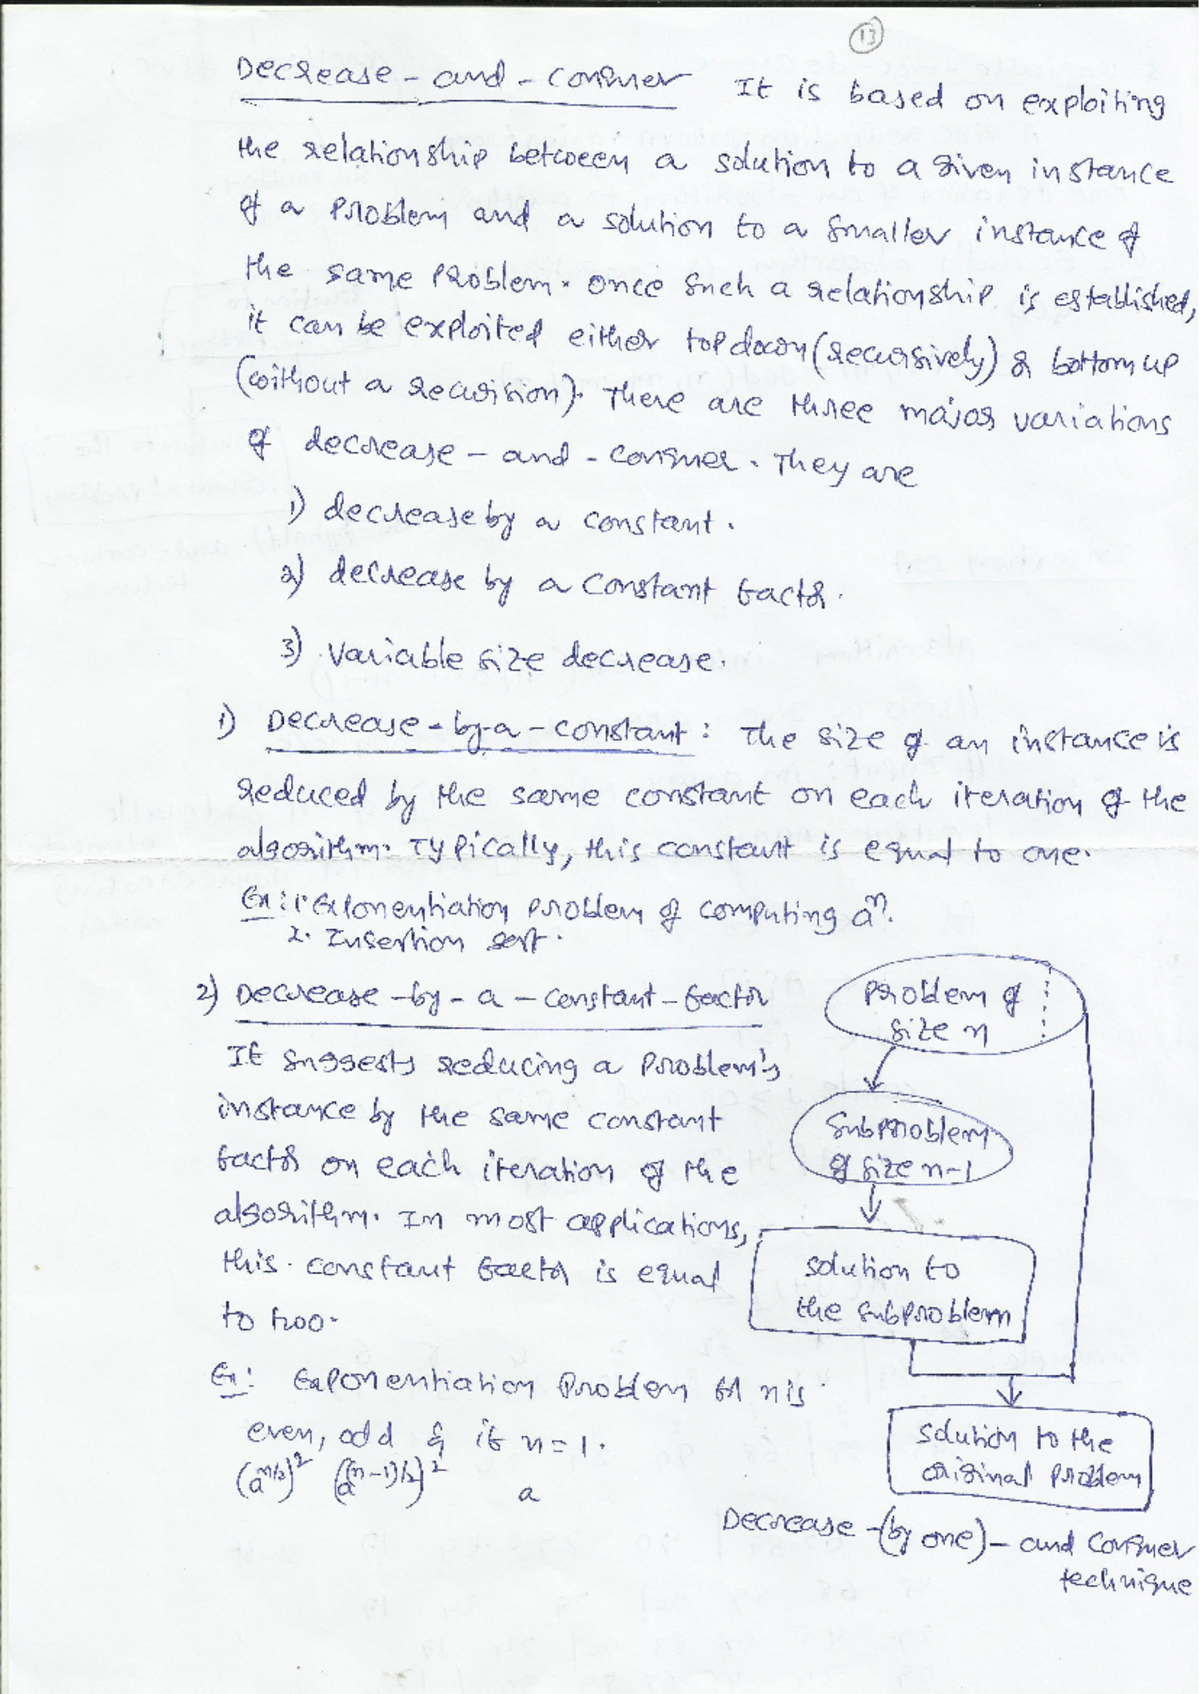 13
Decrease - and - Conquer It is based on exploiting
the relationship between a solution to a given instance
of a Problem and a solution to a smaller instance of
the same problem. once such a relationship is established,
it can be exploited either top down (recursively) or bottom up
(without a recursion). There are three major variations
of decrease - and - conquer. They are
1) decrease by a constant.
2) decrease by a constant factor.
3) variable size decrease.
1) Decrease - by-a - constant : The size of an instance is
reduced by the same constant on each iteration of the
algorithm. Typically, this constant is equal to one.
Ex: 1. Exponentiation problem of computing aⁿ.
2. Insertion sort.
2) Decrease - by - a - constant - factor
It suggests reducing a problem's
instance by the same constant
factor on each iteration of the
algorithm. In most applications,
this constant factor is equal
to two.
Ex: Exponentiation problem for n is
even, odd & if n = 1.
(a^n/2)² (a^(n-1)/2)² a
Problem of
size n
Subproblem
of size n-1
solution to
the subproblem
solution to the
original problem
Decrease - (by one) - and conquer
technique